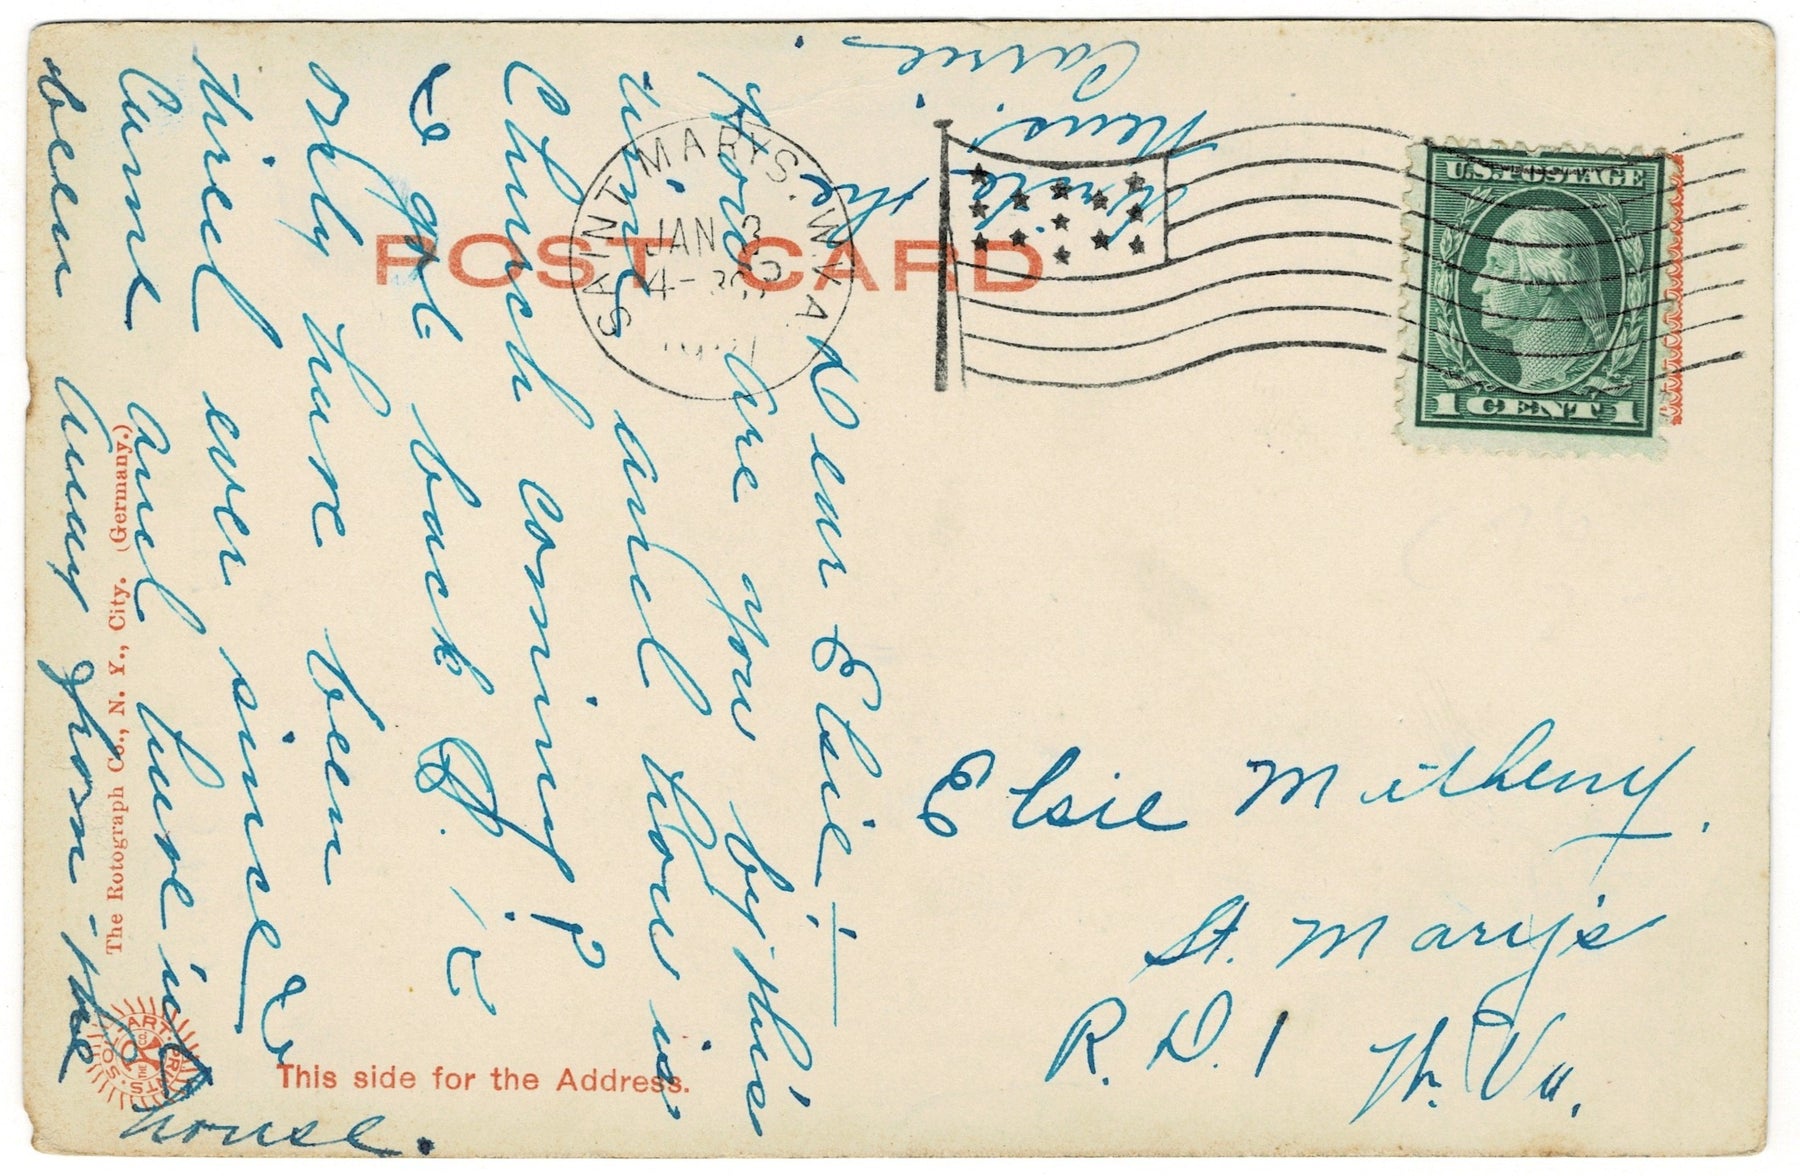 POST CARD
SAINT MARYS. W. VA.
JAN 3
4-30P
U.S. POSTAGE
1 CENT 1
Dear Elsie:—
How are you by this
time and how is
Church coming?
I got back
Only have been
ever since I
came and have it
been away from the
house.
Write the
News.
Carrie.
Elsie Metheny.
St. Mary's
R. D. 1 W. Va.
The Rotograph Co., N. Y., City. (Germany.)
ART PRINTS SOL
This side for the Address.